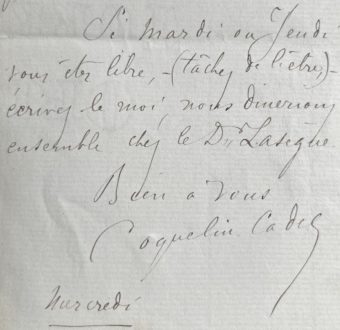 Si mardi ou Jeudi
vous êtes libre, - (tâchez de l'être,) -
écrivez le moi, nous dinerions
ensemble chez le Dr Lasègue.
Bien à vous
Coquelin Cadet
Mercredi